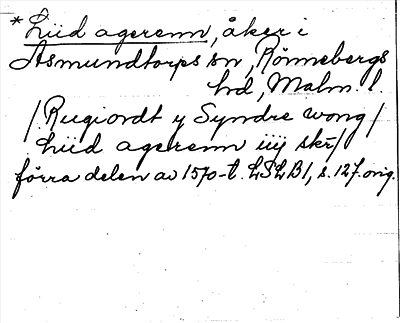 *Liid agerenn, åker i
Asmundtorps sn, Rönnebergs
hd, Malm. l.
/Rugiordt y Syndre wong/
Liid agerenn iiij skr/
förra delen av 1570-t. LSLB1, s. 127. orig.